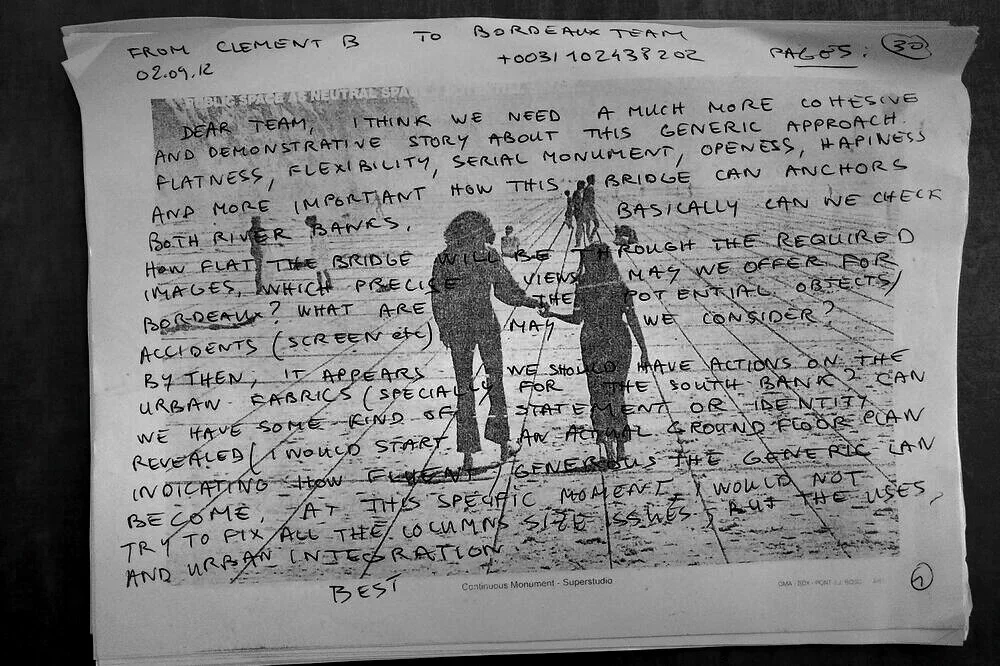 FROM CLEMENT B TO BORDEAUX TEAM
02.09.12 +0031102438202 PAGES: 30
PUBLIC SPACE AS NEUTRAL SPA
DEAR TEAM, I THINK WE NEED A MUCH MORE COHESIVE
AND DEMONSTRATIVE STORY ABOUT THIS GENERIC APPROACH.
FLATNESS, FLEXIBILITY, SERIAL MONUMENT, OPENESS, HAPINESS
AND MORE IMPORTANT HOW THIS BRIDGE CAN ANCHORS
BOTH RIVER BANKS. BASICALLY CAN WE CHECK
HOW FLAT THE BRIDGE WILL BE THROUGH THE REQUIRED
IMAGES, WHICH PRECISE VIEWS MAY WE OFFER FOR
BORDEAUX? WHAT ARE THE POTENTIAL OBJECTS/
ACCIDENTS (SCREEN etc) MAY WE CONSIDER?
BY THEN, IT APPEARS WE SHOULD HAVE ACTIONS ON THE
URBAN FABRICS (SPECIALLY FOR THE SOUTH BANK? CAN
WE HAVE SOME KIND OF STATEMENT OR IDENTITY
REVEALED (I WOULD START AN ACTUAL GROUND FLOOR PLAN
INDICATING HOW FLUENT GENEROUS THE GENERIC CAN
BECOME. AT THIS SPECIFIC MOMENT, I WOULD NOT
TRY TO FIX ALL THE COLUMNS SIZE ISSUES, BUT THE USES,
AND URBAN INTEGRATION.
BEST
Continuous Monument - Superstudio
OMA - BDX - PONT J.J. BOSC
1